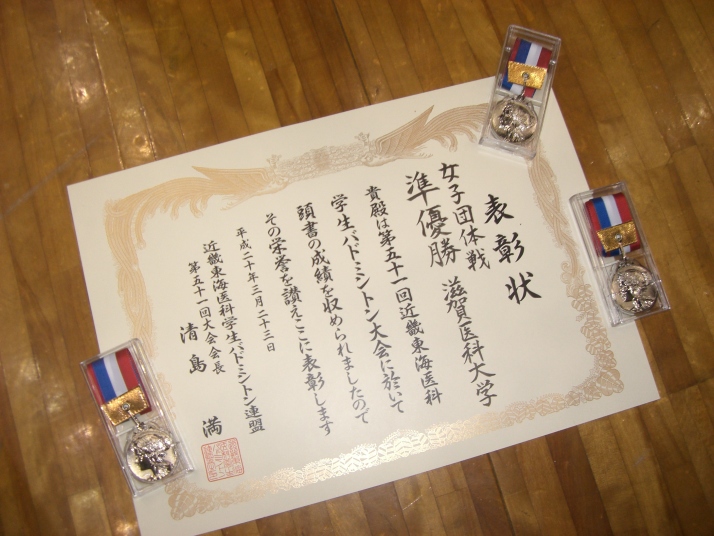 表彰状
女子団体戦
準優勝 滋賀医科大学
貴殿は第五十一回近畿東海医科
学生バドミントン大会に於いて
頭書の成績を収められましたので
その栄誉を讃えここに表彰します
平成二十年三月二十三日
近畿東海医科学生バドミントン連盟
第五十一回大会会長
清島 満